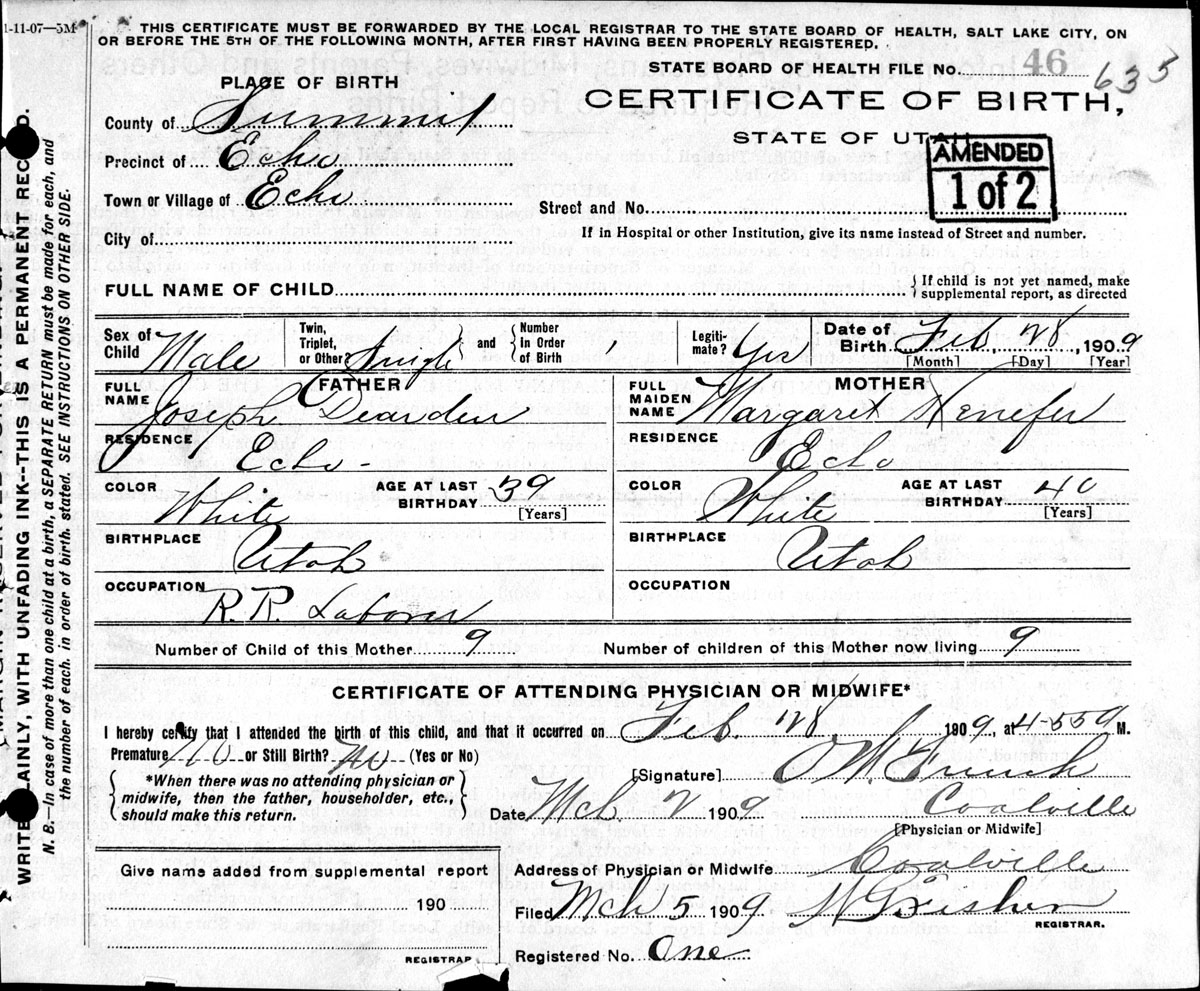 1-11-07—5M
THIS CERTIFICATE MUST BE FORWARDED BY THE LOCAL REGISTRAR TO THE STATE BOARD OF HEALTH, SALT LAKE CITY, ON
OR BEFORE THE 5TH OF THE FOLLOWING MONTH, AFTER FIRST HAVING BEEN PROPERLY REGISTERED.
STATE BOARD OF HEALTH FILE No. 46 633
PLACE OF BIRTH
CERTIFICATE OF BIRTH,
STATE OF UTAH
AMENDED
1 of 2
County of Summit
Precinct of Echo
Town or Village of Echo
Street and No.
City of
If in Hospital or other Institution, give its name instead of Street and number.
FULL NAME OF CHILD { If child is not yet named, make
supplemental report, as directed
Sex of Child Male Twin, Triplet, or Other? Single and { Number In Order of Birth Legiti-mate? Yes Date of Birth Feb. 28, 1909
[Month] [Day] [Year]
FATHER
FULL NAME Joseph Dearden
RESIDENCE
Echo -
COLOR White AGE AT LAST BIRTHDAY 39
[Years]
BIRTHPLACE
Utah
OCCUPATION
R. R. Laborer
MOTHER
FULL MAIDEN NAME Margaret Henefer
RESIDENCE
Echo
COLOR White AGE AT LAST BIRTHDAY 40
[Years]
BIRTHPLACE
Utah
OCCUPATION
Number of Child of this Mother 9 Number of children of this Mother now living 9
CERTIFICATE OF ATTENDING PHYSICIAN OR MIDWIFE*
I hereby certify that I attended the birth of this child, and that it occurred on Feb. 28, 1909, at M.
Premature No or Still Birth? No (Yes or No)
{ *When there was no attending physician or
midwife, then the father, householder, etc.,
should make this return. }
[Signature]
Date Mch. 2 1909 Coalville
[Physician or Midwife]
Give name added from supplemental report
190
REGISTRAR
Address of Physician or Midwife Coalville
Filed Mch 5 1909
REGISTRAR.
Registered No. One
WRITE PLAINLY, WITH UNFADING INK--THIS IS A PERMANENT RECORD.
N. B.—In case of more than one child at a birth, a SEPARATE RETURN must be made for each, and
the number of each, in order of birth, stated. SEE INSTRUCTIONS ON OTHER SIDE.